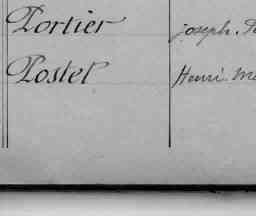 Portier joseph.
Postel Henri